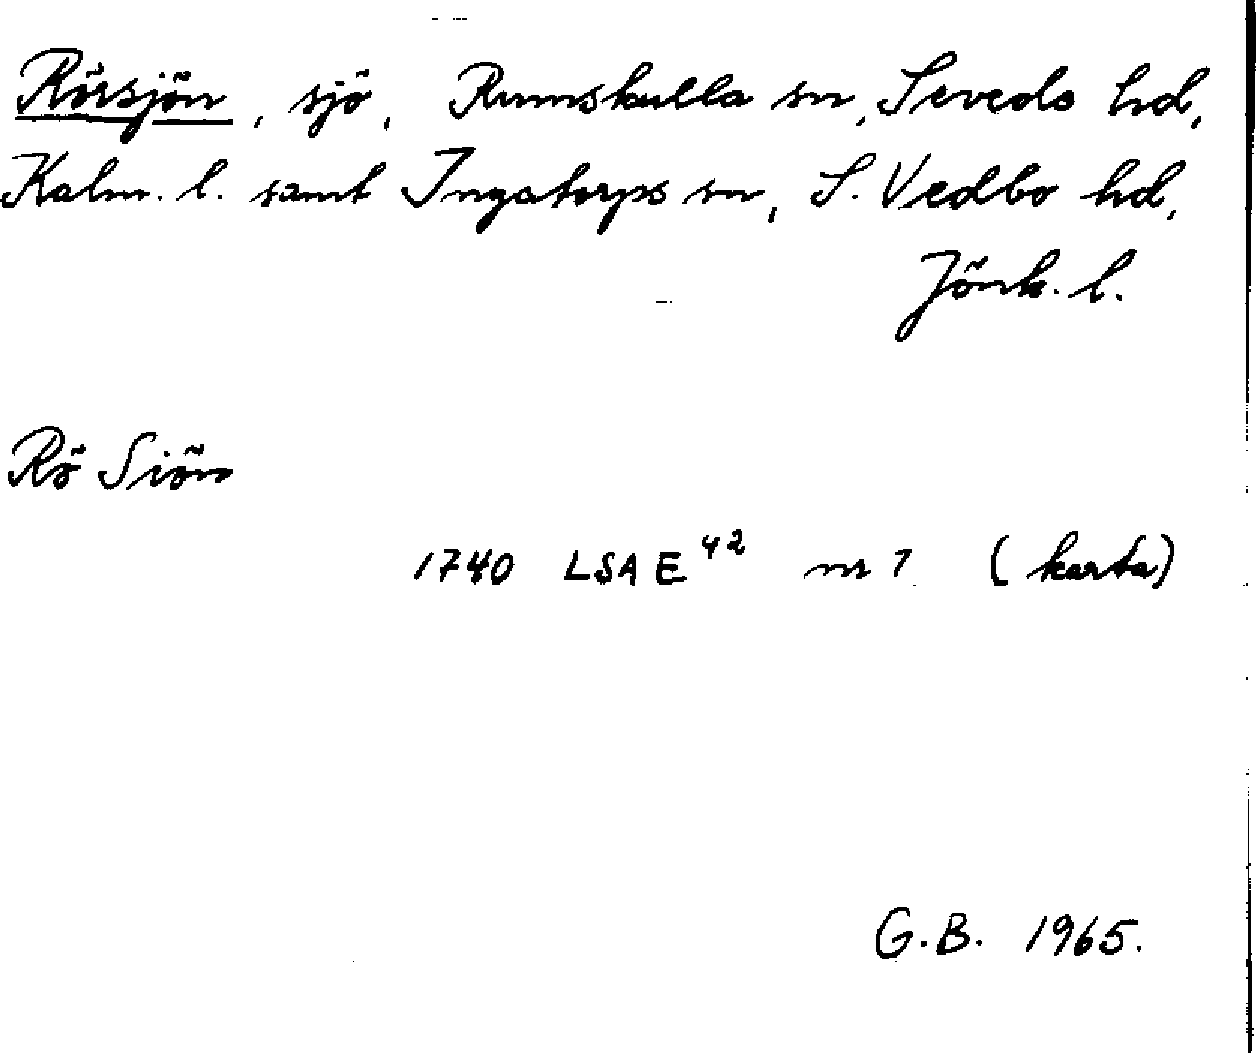 Rörsjön, sjö, Rumskulla sn, Sevede hd,
Kalm. l. samt Ingatorps sn, S. Vedbo hd,
Jönk. l.
Rö Siön
1740 LSA E 42 nr 7 (karta)
G.B. 1965.